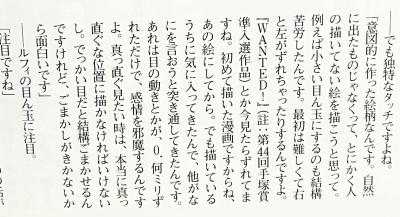 ――でも独特なタッチですよね。
「意図的に作った絵柄なんです。自然
に出たものじゃなくって、とにかく人
の描いてない絵を描こうと思って。
例えば小さい目ん玉にするのも結構
苦労したんです。最初は難しくて右
と左がずれちゃったりするんですよ。
『WANTED!』(註：第44回手塚賞
準入選作品)とか今見たらずれてま
すね。初めて描いた漫画ですからね、
あの絵にしてから。でも描いている
うちに気に入ってきたんで、他がな
にを言おうと突き通してきたんです。
あれは目の動きとかが、0.何ミリず
れただけで、感情を邪魔するんです
よ。真っ直ぐ見たい時は、本当に真っ
直ぐな位置に描かなければいけない
し。でっかい目だと結構ごまかせるん
ですけれど、ごまかしがきかないか
ら面白いです」
――ルフィの目ん玉に注目。
「注目ですね」